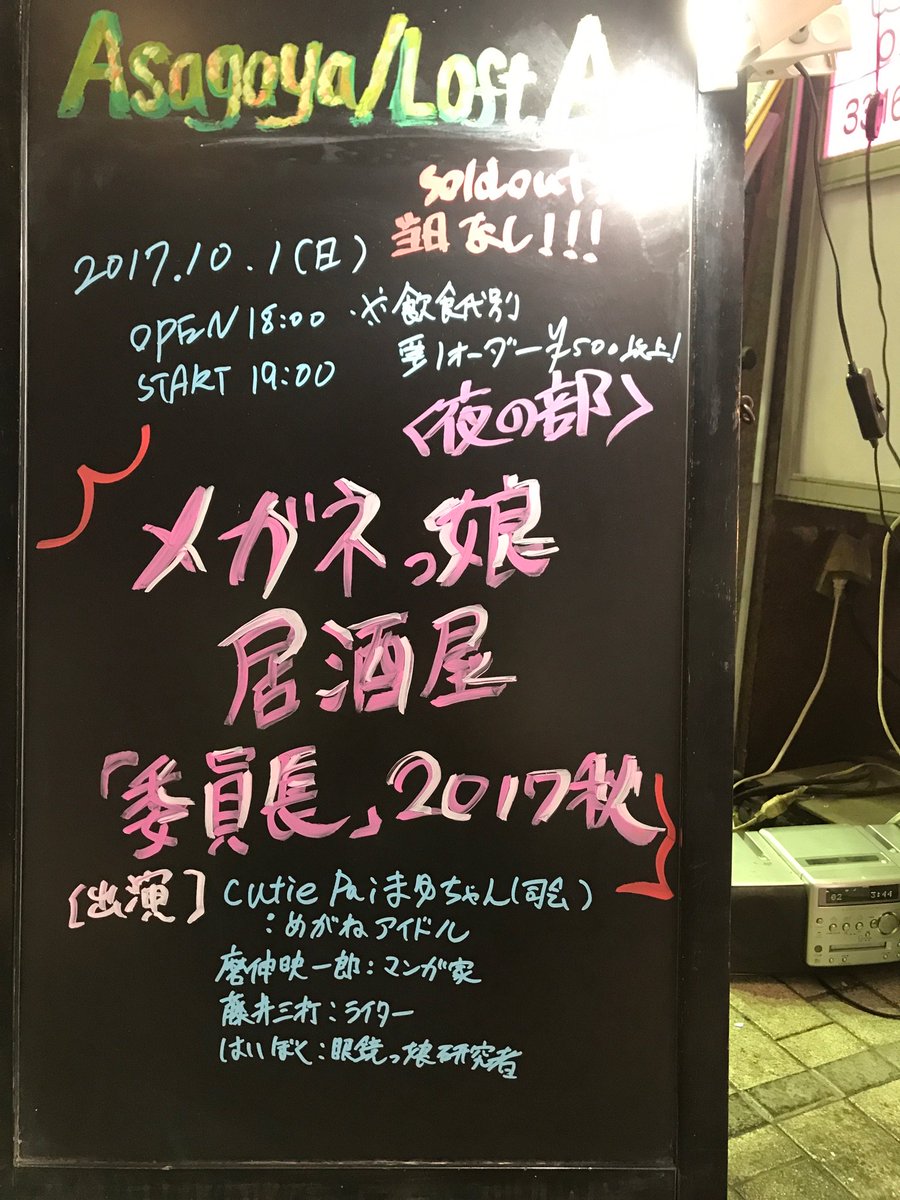 Asagaya/Loft A
soldout!
当日なし!!!
2017.10.1(日)
OPEN 18:00 ※飲食代別
START 19:00 要1オーダー¥500以上!
<夜の部>
メガネっ娘
居酒屋
「委員長」2017秋
[出演] Cutie Paiまゆちゃん(司会)
:めがねアイドル
磨伸映一郎:マンガ家
藤井三打:ライター
はいぼく:眼鏡っ娘研究者
p
3316
02 3:44